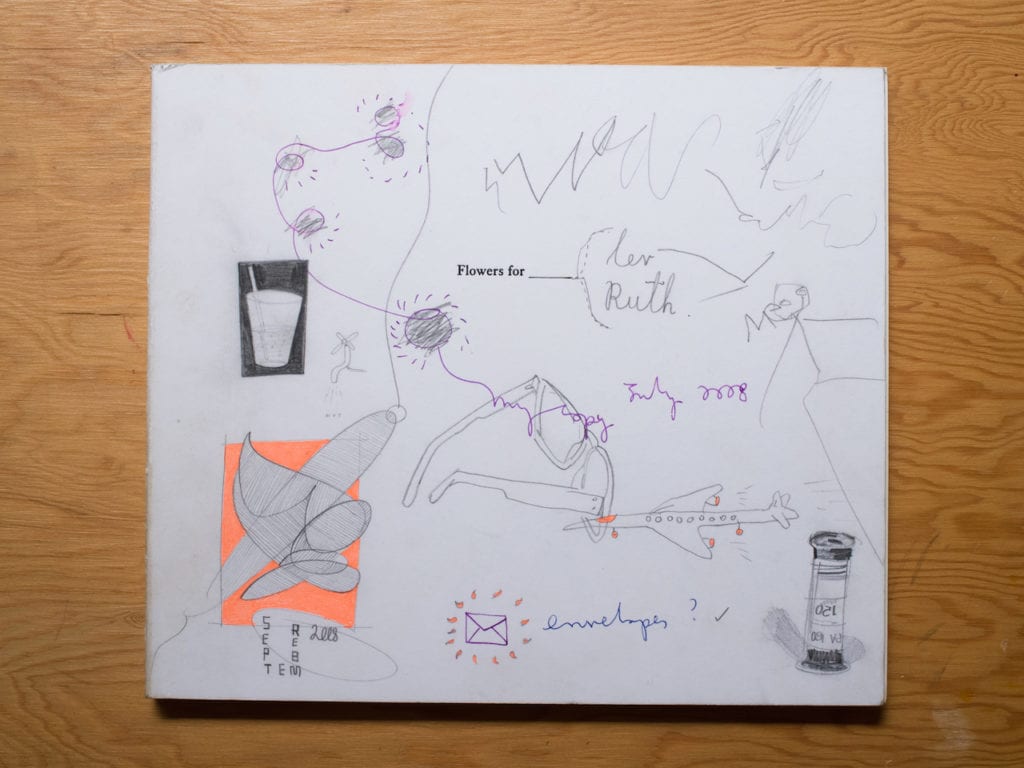 Flowers for
lev
Ruth.
my copy July 2008
SEPTEMBER 2008
envelopes ? ✓
150